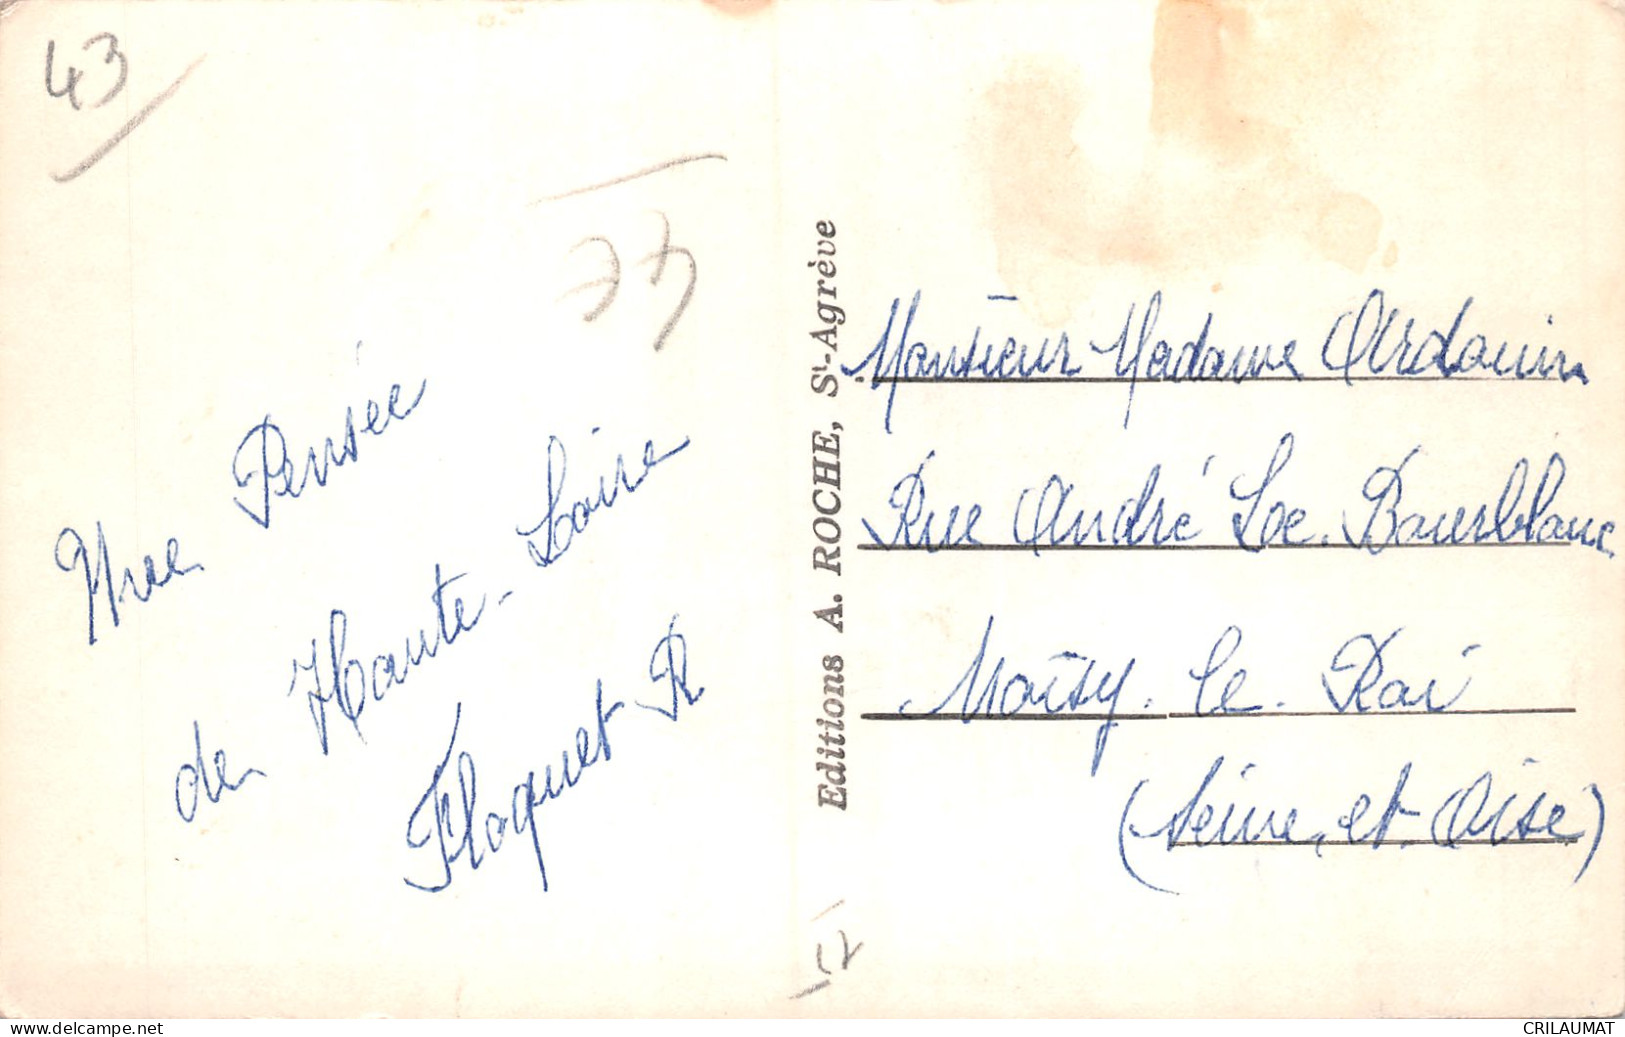 43
Une Pensée
de Haute-Loire
Floquet R
Editions A. ROCHE, St-Agrève
Monsieur Madame Ardouin
Rue André Loc. Bourblanc
Noisy. le. Roi
(Seine. et. Oise)
www.delcampe.net
CRILAUMAT